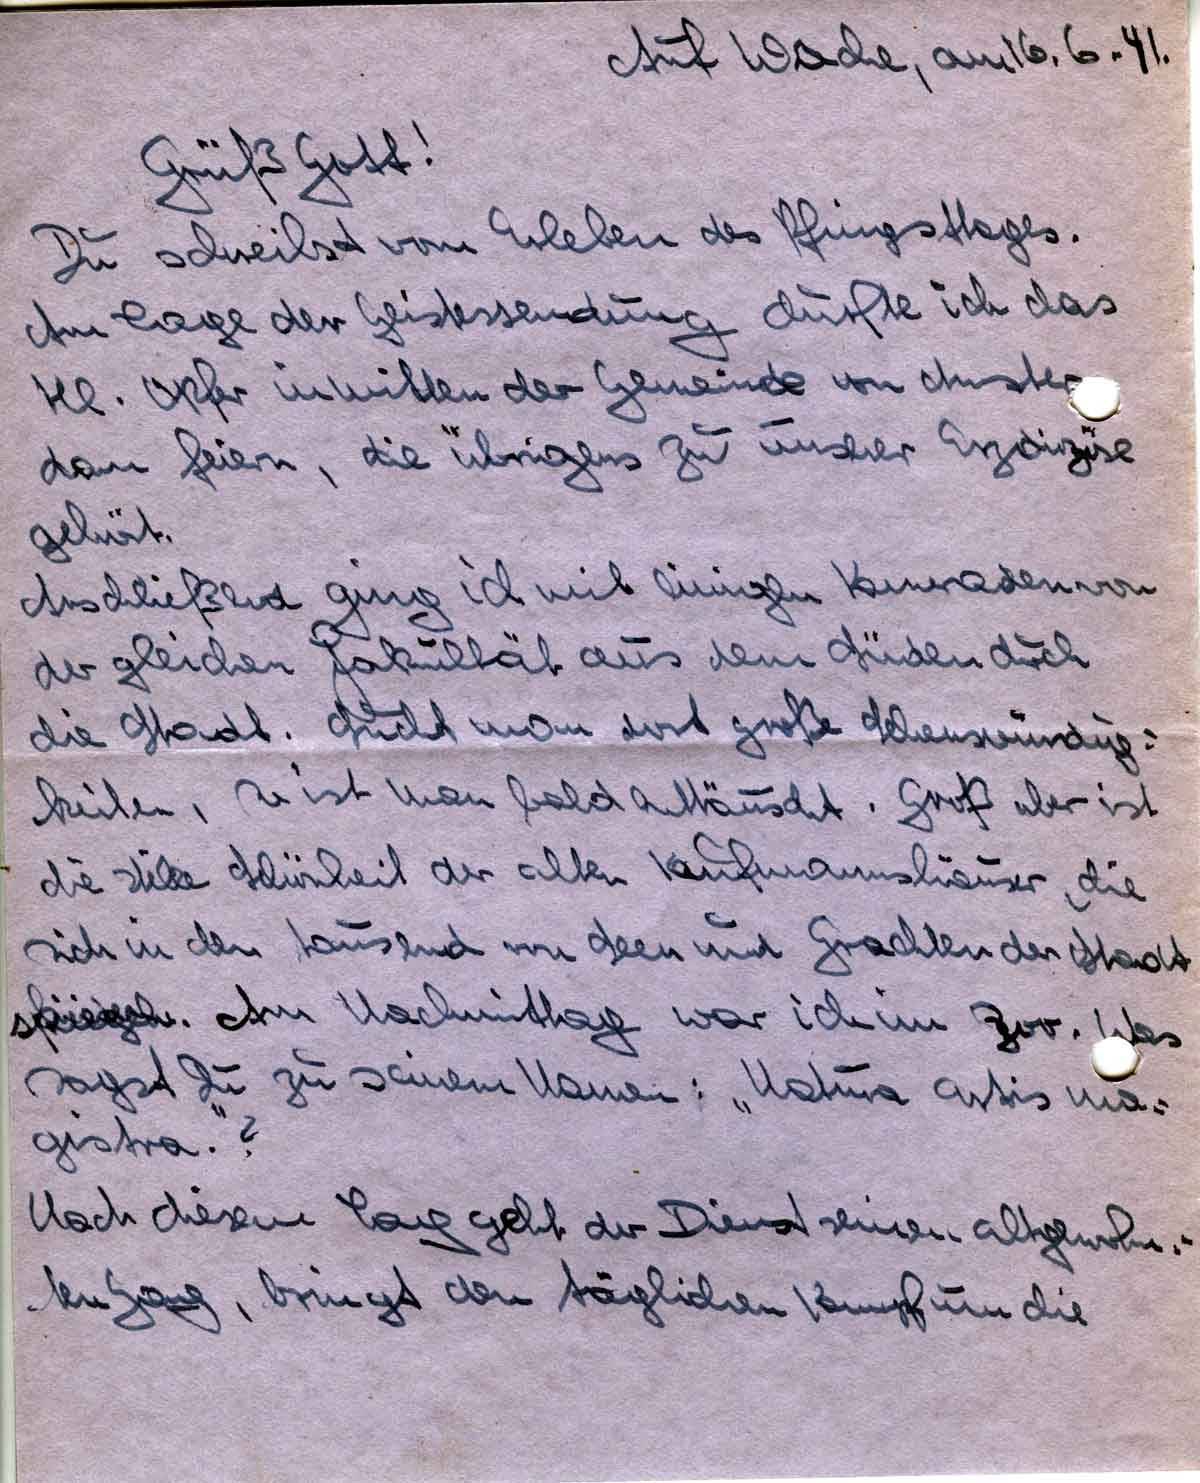 Auf Wache, am 16.6.41.
Grüß Gott!
Du schreibst vom Erleben des Pfingsttages.
Am Tage der Geistessendung durfte ich das
Hl. Opfer inmitten der Gemeinde von Amster
dam feiern, die übrigens zu unserer Erzdiözöse
gehört.
Anschließend ging ich mit einigen Kameraden von
der gleichen Fakultät aus dem Süden durch
die Stadt. Sucht man dort große Sehenswürdig-
keiten, so ist man bald enttäuscht. Groß aber ist
die stille Schönheit der alten Kaufmannshäuser, die
sich in den tausend von Seen und Grachten der Stadt
spiegeln. Am Nachmittag war ich im Zoo. Was
sagst Du zu seinem Namen: „Natura artis ma-
gistra."?
Nach diesem Tag geht der Dienst seinen altgewohn-
ten Gang, bringt den täglichen Kampf um die